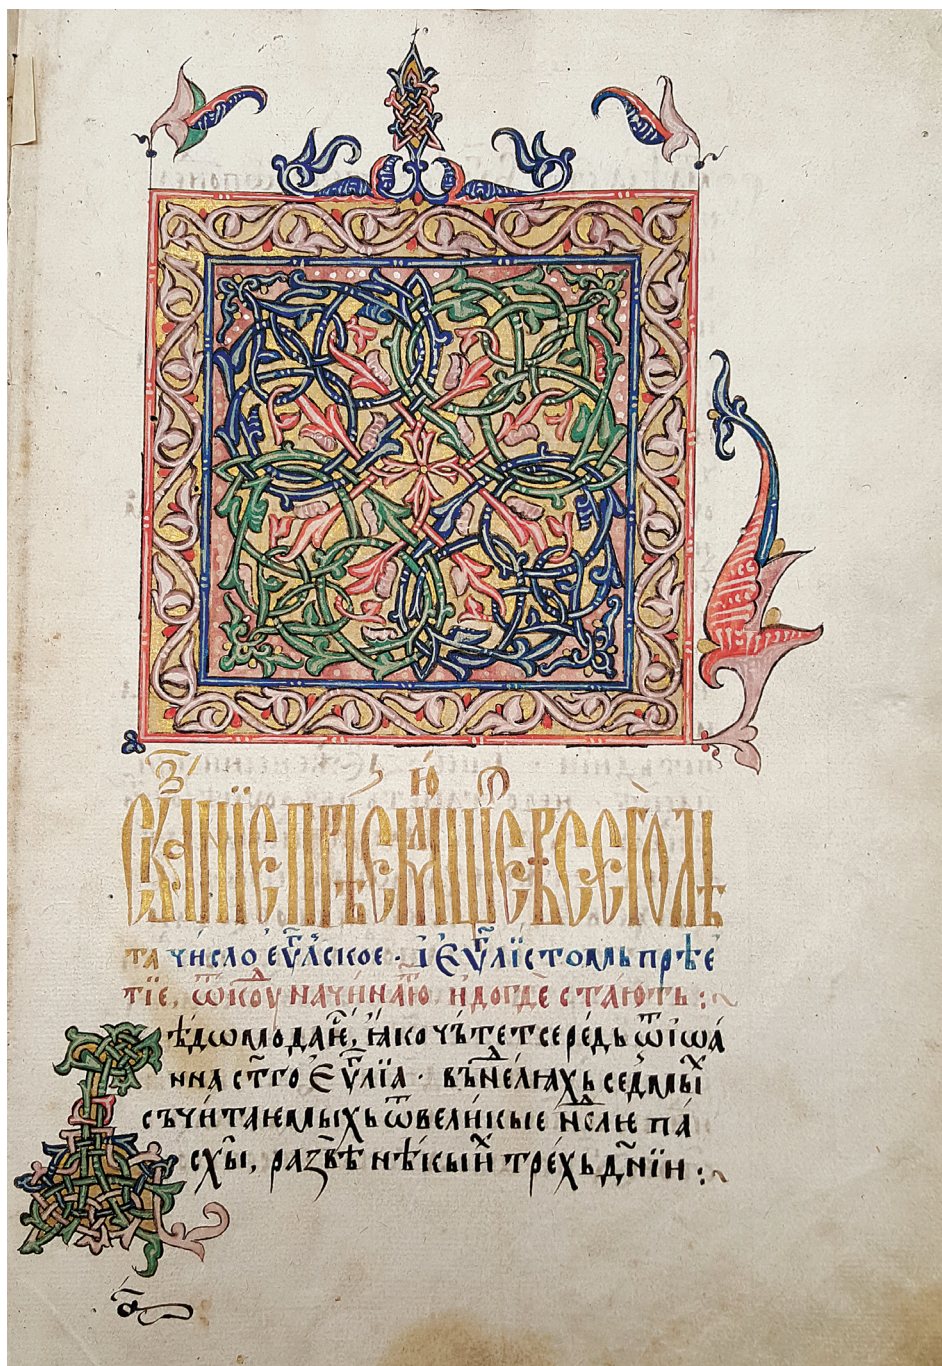 Съказанїе прїемлющее въсего лѣ
та число еѵⷢ҇лское · і Еѵⷢ҇лїстомь прѣе
тїе, ѿкоуⷣ начинаю, и догде стають :~
Вѣдомо да ⷭ҇е, ꙗко чътет сѧ редь ѿ іѡа
нна ст҃го Еѵⷢ҇лїа · въ неⷣлꙗхь седмыⷯ
съчитаемыхь ѿ великые неⷣлꙗ па
схы, развѣ нѣкыиⷯ трехь дн҃їи :~
а҃